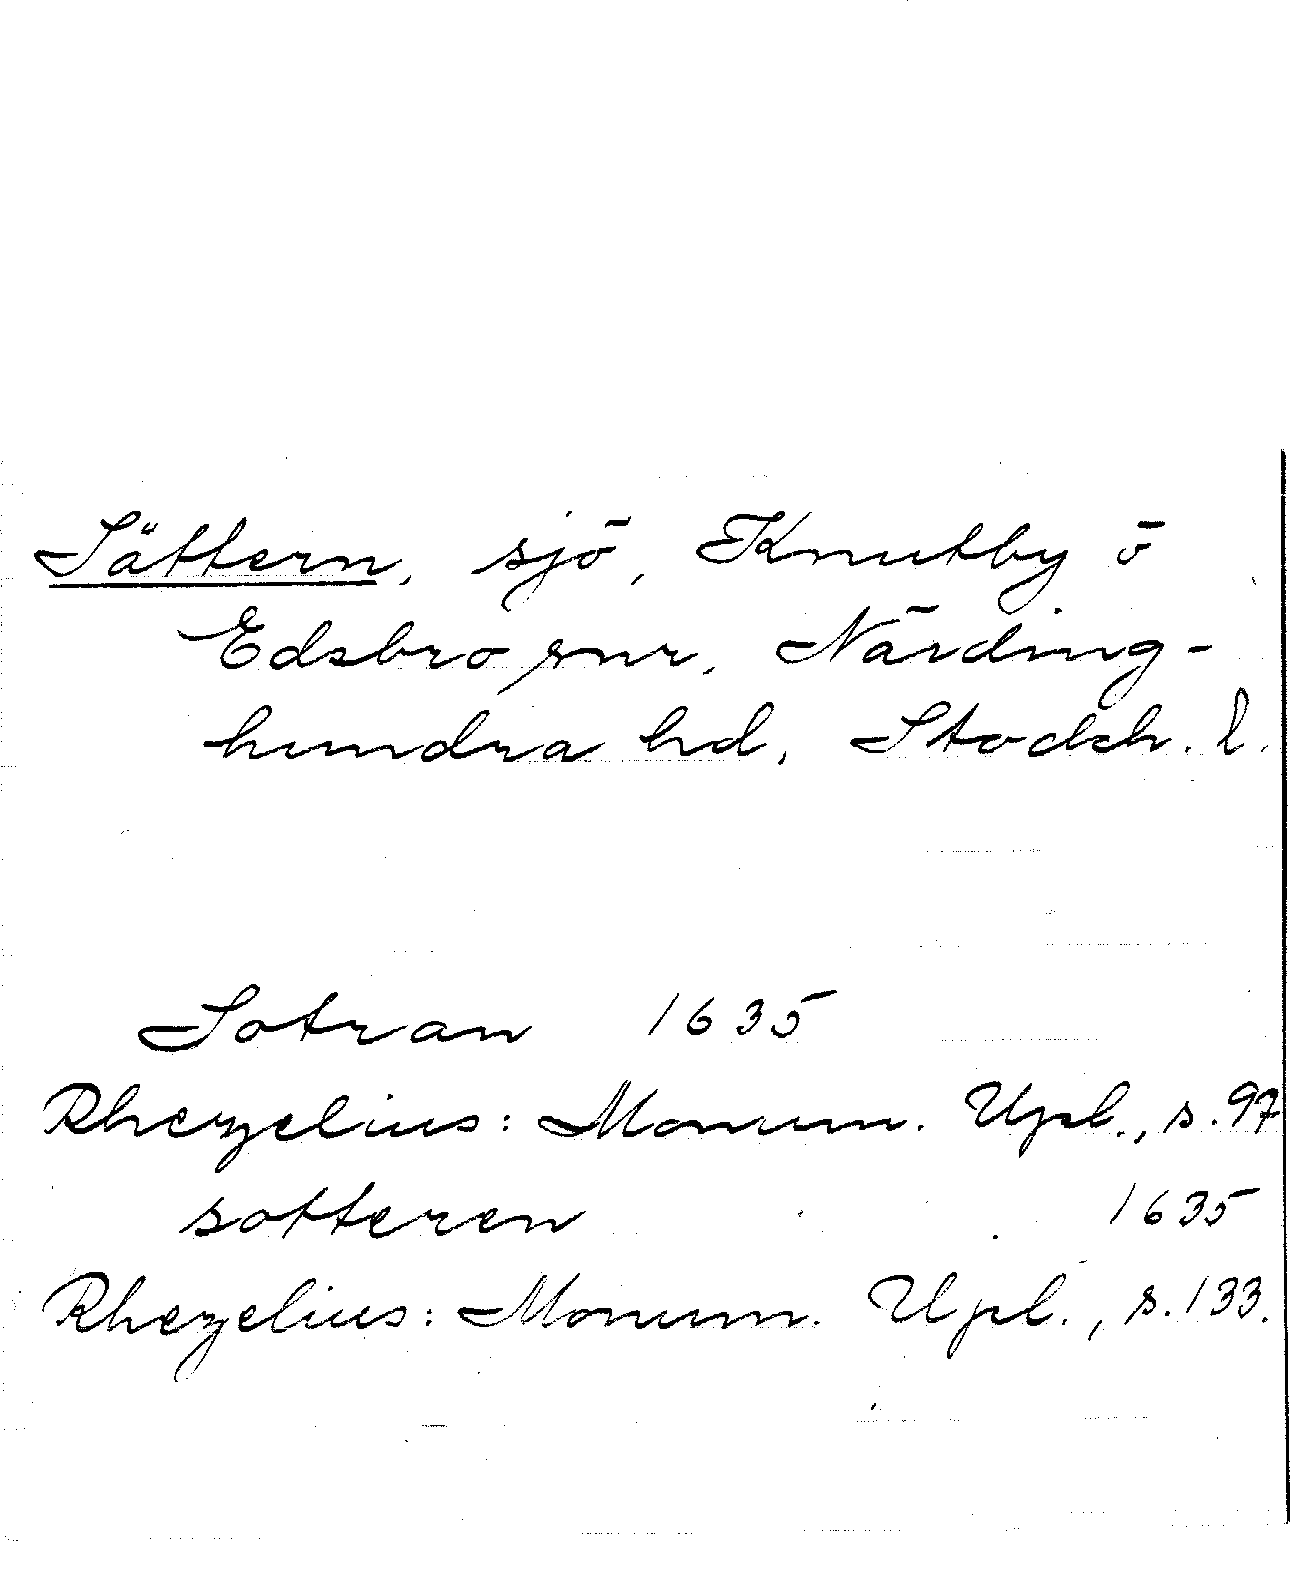 Sättern, sjö, Knutby o
Edsbro snr, Närding-
hundra hd, Stockh. l.
Sotran 1635
Rhezelius: Monum. Upl., s. 97
sotteren 1635
Rhezelius: Monum. Upl., s. 133.